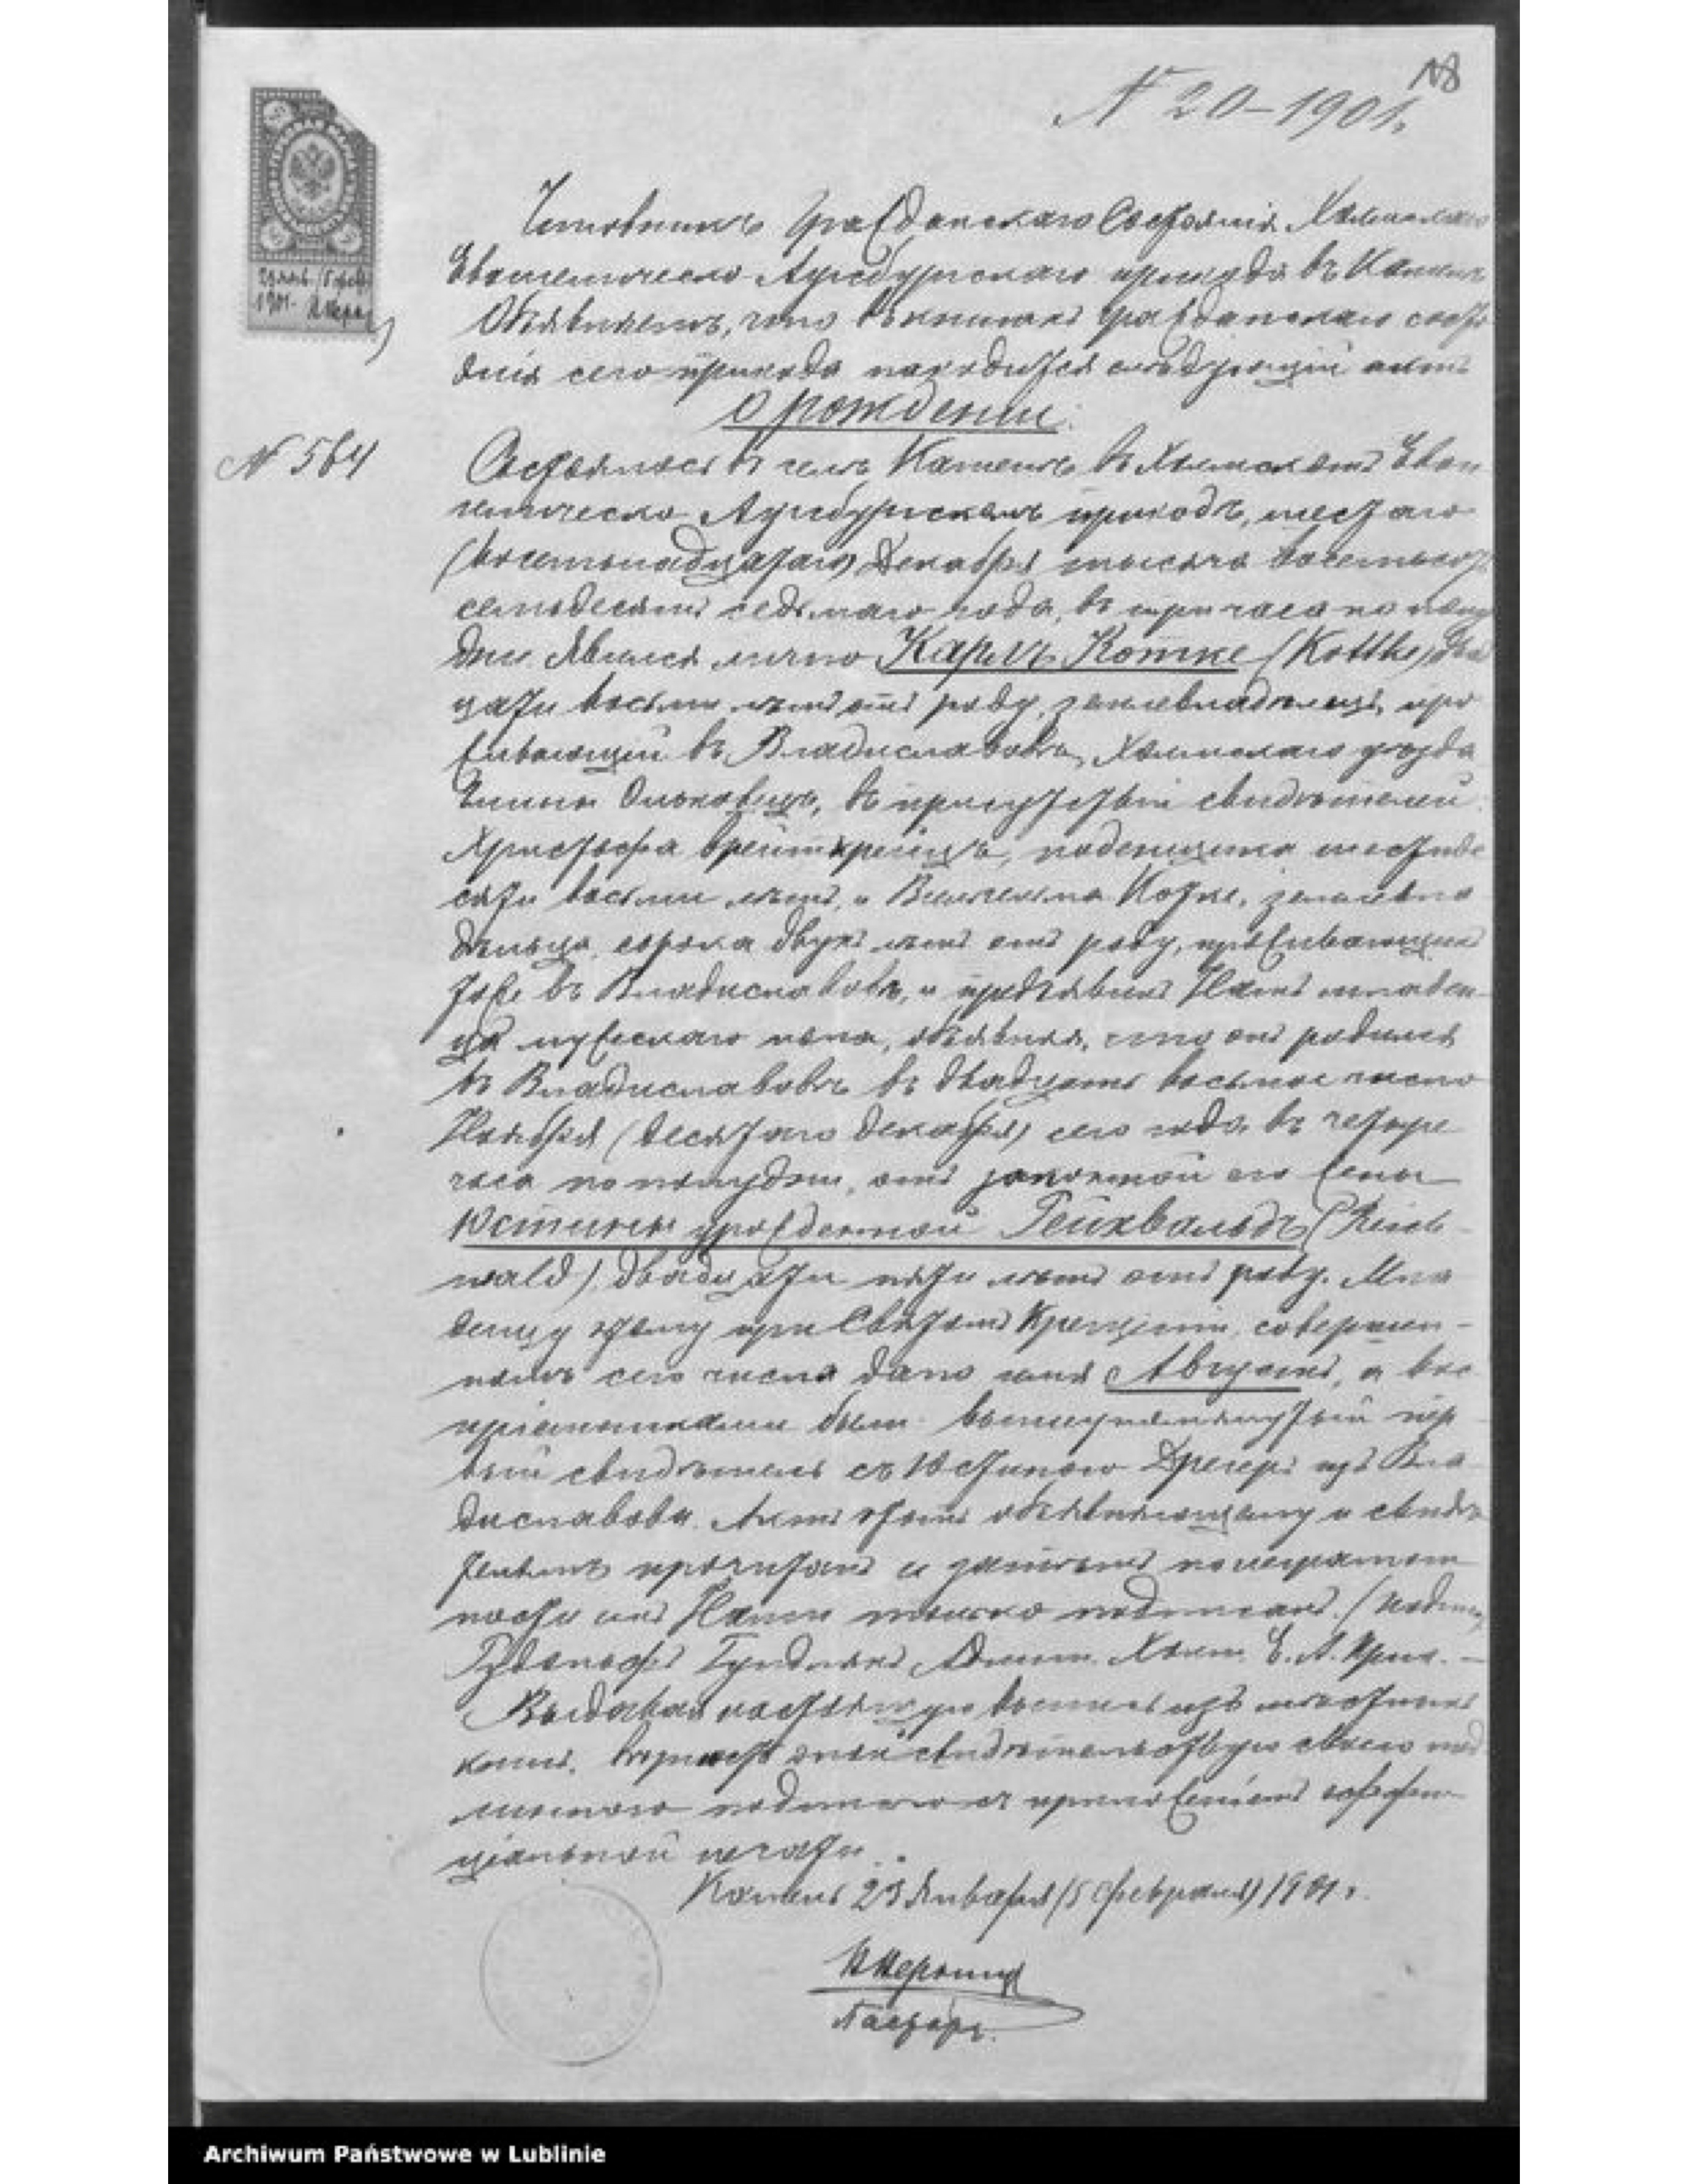 18
N 20–1901.
ГЕРБОВАЯ МАРКА
1901.
Чиновникъ Гражданскаго Состоянія Холмскаго
Евангелическо Аугсбургскаго прихода въ Камень
Объявляетъ, что въ книгахъ гражданскаго состо
янія сего прихода находится слѣдующій актъ
О рожденіи.
N 564
Состоялось въ селѣ Каменѣ въ Холмскомъ Еван
гелическо Аугсбургскомъ приходѣ, шестаго
(восемнадцатаго) Декабря тысяча восемьсотъ
семьдесятъ седьмаго года, въ три часа по полу
дни Явился лично Карлъ Котке (Kottke) два
цати восьми лѣтъ отъ роду, землевладѣлецъ, про
живающій въ Владиславовѣ, Холмскаго уѣзда
Гмины Ольховецъ, въ присутствіи свидѣтелей
Христофа Брейткрейцъ, поденщика шестиде
сяти восьми лѣтъ, и Вильгельма Котке, землевла
дѣльца, сорока двухъ лѣтъ отъ роду, проживающихъ
тоже въ Владиславовѣ, и предъявилъ Намъ младен
ца мужескаго пола, объявляя, что онъ родился
въ Владиславовѣ въ двадцать восьмое число
Ноября (десятаго Декабря) сего года въ четыре
часа по полудни, отъ законной его жены
Юстины урожденной Рейхвальдъ (Reich-
wald) двадцати пяти лѣтъ отъ роду. Мла
денцу этому при Святомъ Крещеніи, совершен-
номъ сего числа дано имя Августъ, а вос
пріемниками были вышеупомянутый пер-
вый свидѣтель съ Юстиною Дрегеръ изъ Вла
диславова. Актъ этотъ объявляющему и свидѣ
телямъ прочитанъ и затѣмъ по неграмот
ности ихъ Нами только подписанъ. (подпис)
Рудольфъ Гундлахъ Админ. Холм. Е. А. Прих. –
Выдавая настоящую выпись изъ мѣстныхъ
книгъ, вѣрность оной свидѣтельствую своею под
линною подписью съ приложеніемъ оффи-
ціальной печати.
Камень 23 Января (5 Февраля) 1901 г.
Пасторъ.
Archiwum Państwowe w Lublinie